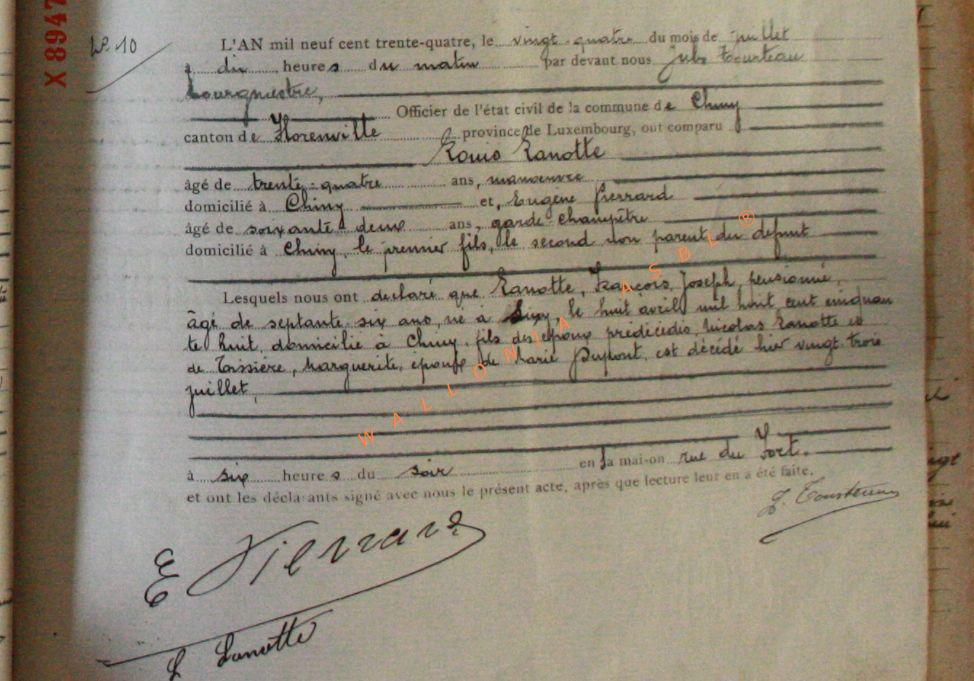 X 8947
No. 10
L'AN mil neuf cent trente-quatre, le vingt-quatre du mois de juillet
à dix heures du matin par devant nous Jules Tourteau
bourgmestre,
Officier de l'état civil de la commune de Chiny
canton de Florenville province de Luxembourg, ont comparu
Louis Lanotte
âgé de trente-quatre ans, manoeuvre
domicilié à Chiny et, Eugène Pierrard
âgé de soixante deux ans, garde-champêtre
domicilié à Chiny, le premier fils, le second non parent du défunt
Lesquels nous ont déclaré que Lanotte, François, Joseph, pensionné,
âgé de septante-six ans, né à le huit avril mil huit cent cinquan
te huit, domicilié à Chiny, fils des époux prédécédés, Nicolas Lanotte et
de Marguerite, époux de Marie Dupont, est décédé hier vingt-trois
juillet,
à six heures du soir en sa maison rue du Fort.
et ont les déclarants signé avec nous le présent acte, après que lecture leur en a été faite.
E Pierrard
L Lanotte
WALLONIA ASBL ©